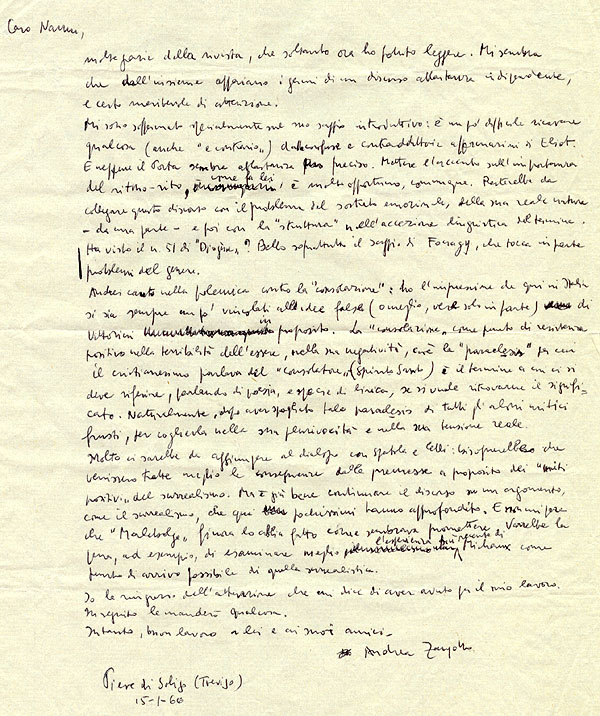 Caro Nanni,
molte grazie della rivista, che soltanto ora ho potuto leggere. Mi sembra
che dall'insieme appaiano i germi di un discorso abbastanza indipendente,
e certo meritevole di attenzione.
Mi sono soffermato specialmente sul suo saggio introduttivo: è un po' difficile ricavare
qualcosa (anche "e contrario") dalle confuse e contraddittorie affermazioni di Eliot.
E neppure il Porta sembra abbastanza preciso. Mettere l'accento sull'importanza
del ritmo-rito, come fa lei, è molto opportuno, comunque. Resterebbe da
collegare questo discorso con il problema del sostrato emozionale, della sua reale natura
- da una parte - e poi con la "struttura" nell'accezione linguistica del termine.
Ha visto il n. 51 di "Diogène"? Bello soprattutto il saggio di Fonagy, che tocca in parte
problemi del genere.
Andrei cauto nella polemica contro la "consolazione": ho l'impressione che qui in Italia
si sia sempre un po' vincolati all'idea falsa (o meglio, vera solo in parte) di
Vittorini in proposito. La "consolazione" come punto di resistenza
positivo nella terribilità dell'essere, nella sua negatività, cioè la "paraclesis" per cui
il cristianesimo parlava del "consolatore" (Spirito Santo) è il termine a cui ci si
deve riferire, parlando di poesia, e specie di lirica, se si vuole ritrovarne il signifi-
cato. Naturalmente, dopo aver spogliato tale paraclesis di tutti gli aloni mitici
frusti, per coglierla nella sua plurivocità e nella sua tensione reale.
Molto ci sarebbe da aggiungere al dialogo con Spatola e Celli: bisognerebbe che
venissero tratte meglio le conseguenze dalle premesse a proposito dei "miti
positivi" del surrealismo. Ma è già bene continuare il discorso su un argomento,
come il surrealismo, che qui pochissimi hanno approfondito. E non mi pare
che "Malebolge" finora lo abbia fatto come sembrava promettere. Varrebbe la
pena, ad esempio, di esaminare meglio l'esperienza più recente di Michaux come
punto di arrivo possibile di quella surrealistica.
Io la ringrazio dell'attenzione che mi dice di aver avuto per il mio lavoro.
In seguito le manderò qualcosa.
Intanto, buon lavoro a lei e ai suoi amici.
Andrea Zanzotto
Pieve di Soligo (Treviso)
15-1-66